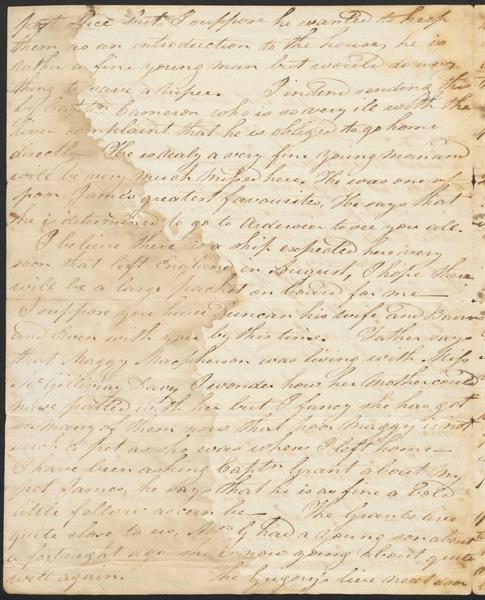 Post office but I suppose he wanted to keep
them as an introduction to the house, he is
rather a fine young man but would do any
thing to save a rupee. I intend sending this
by Captn Cameron who is so very ill with the
liver complaint that he is obliged to go home
directly He is realy a very fine young man and
will be very much missed here, He was one of
poor James's greatest favourites, He says that
he is determined to go to Ardersier to see you all.
I believe there is a ship expected here very
soon that left England in August, I hope there
will be a large packet on board for me—
I suppose you have Duncan his wife and Bairn
and Even with you by this time. Father says
that Maggy Macpherson was living with Miss
McGillivray I wonder how her Mother could
have parted with her but I fancy she has got
so many of them now that poor Maggy is not
such a pet as she was when I left home—
I have been asking Captn Grant about my
pet James, he says that he is as fine a bold
little fellow as can be— The Grants live
quite close to us, Mrs G had a young son about
a fortnight ago she is now going about quite
well again. The Gregory's live next door